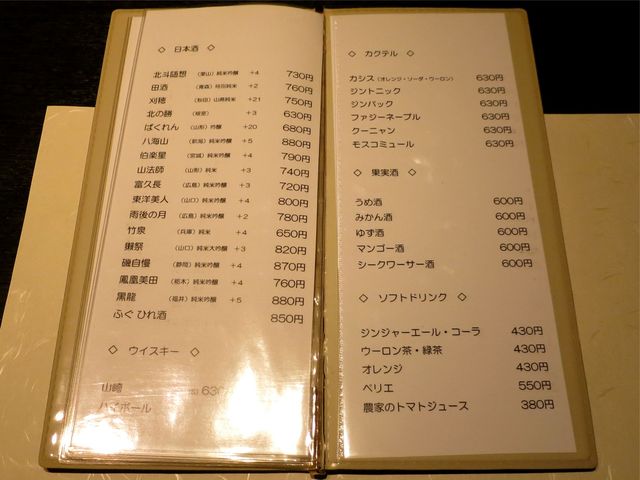 ◇ 日本酒 ◇
北斗随想 （栗山）純米吟醸 +4 730円
田酒 （青森）特別純米 +2 760円
刈穂 （秋田）山廃純米 +21 750円
北の勝 （根室） +3 630円
ばくれん （山形）吟醸 +20 680円
八海山 （新潟）純米吟醸 +5 880円
伯楽星 （宮城）純米吟醸 +4 790円
山法師 （山形）純米 +3 740円
富久長 （広島）純米吟醸 +3 720円
東洋美人 （山口）純米吟醸 +4 800円
雨後の月 （広島）純米吟醸 +2 780円
竹泉 （兵庫）純米 +4 650円
獺祭 （山口）純米大吟醸 +3 820円
磯自慢 （静岡）純米吟醸 +4 870円
鳳凰美田 （栃木）純米吟醸 +4 760円
黒龍 （福井）純米吟醸 +5 880円
ふぐ ひれ酒 850円
◇ ウイスキー ◇
山崎
ハイボール
◇ カクテル ◇
カシス（オレンジ・ソーダ・ウーロン） 630円
ジントニック 630円
ジンバック 630円
ファジーネーブル 630円
クーニャン 630円
モスコミュール 630円
◇ 果実酒 ◇
うめ酒 600円
みかん酒 600円
ゆず酒 600円
マンゴー酒 600円
シークワーサー酒 600円
◇ ソフトドリンク ◇
ジンジャーエール・コーラ 430円
ウーロン茶・緑茶 430円
オレンジ 430円
ペリエ 550円
農家のトマトジュース 380円